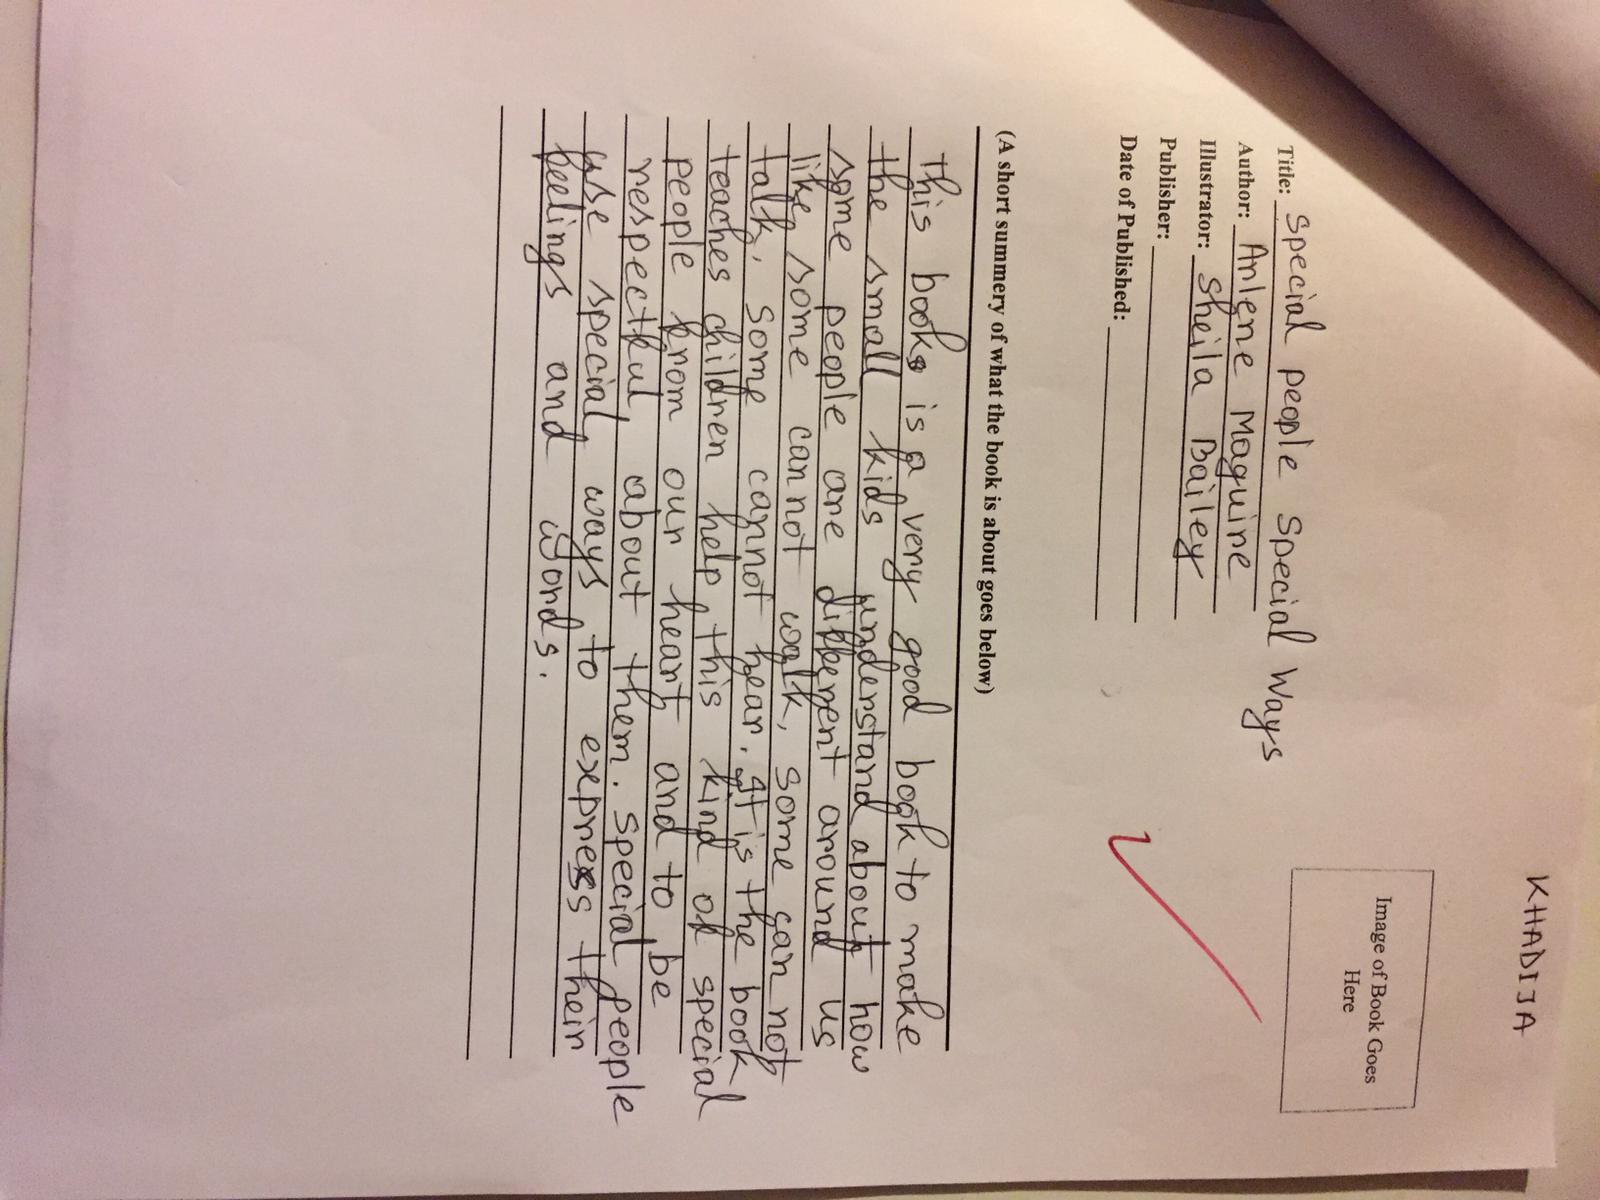 KHADIJA
Image of Book Goes
Here
Title: Special people Special Ways
Author: Arlene Maguire
Illustrator: Sheila Bailey
Publisher:
Date of Published:
(A short summery of what the book is about goes below)
This books is a very good book to make
the small kids understand about how
some people are different around us
like some cannot walk, some can not
talk, some cannot hear. It is the book
teaches children help this kind of special
people from our heart and to be
respectful about them. Special people
use special ways to express their
feelings and words.